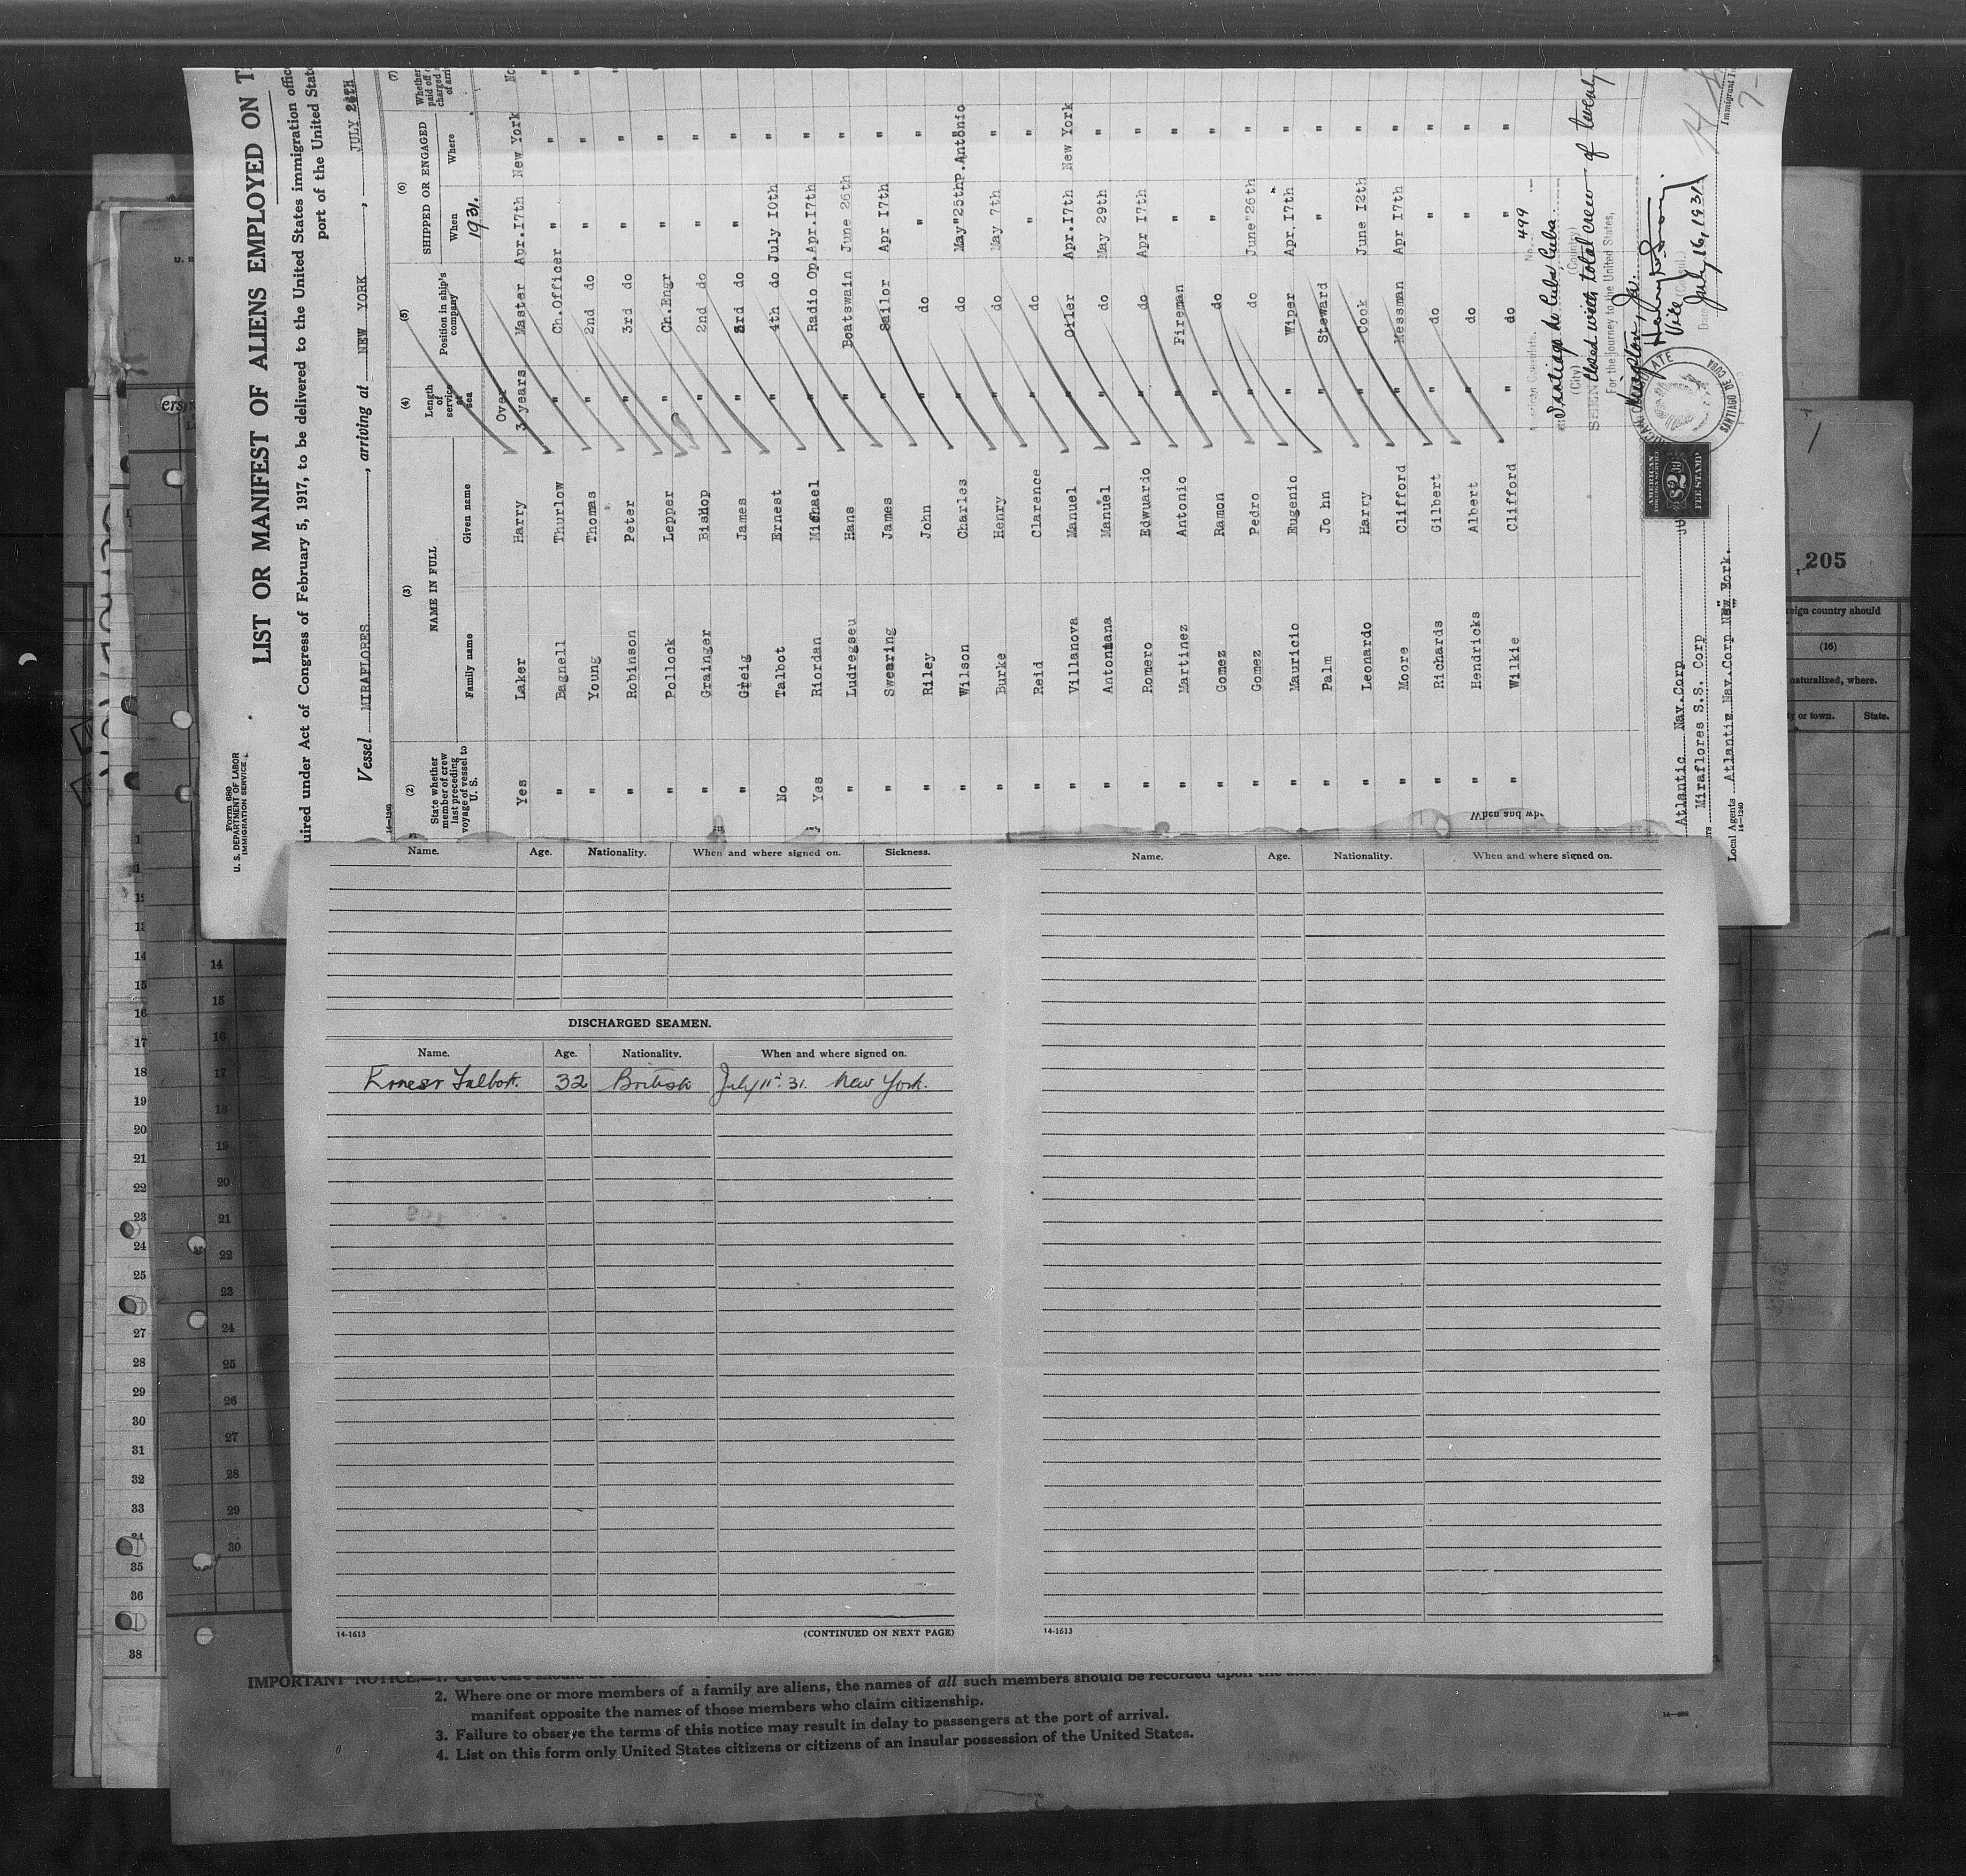 Form 680
U. S. DEPARTMENT OF LABOR
IMMIGRATION SERVICE
LIST OR MANIFEST OF ALIENS EMPLOYED ON
uired under Act of Congress of February 5, 1917, to be delivered to the United States immigration offic
port of the United Stat
Vessel MIRAFLORES, arriving at NEW YORK, JULY
(2) (3) (4) (5) (6) (7)
State whether member of crew last preceding voyage of vessel to U. S.
NAME IN FULL
Family name Given name
Length of service at sea
Position in ship's company
SHIPPED OR ENGAGED
When Where
1931.
Yes Laker Harry Over 3 years Master Apr.I7th New York No
" Bagnell Thurlow " Ch.Officer " " "
" Young Thomas " 2nd do " " "
" Robinson Peter " 3rd do " " "
" Pollock Lepper " Ch.Engr " "
" Grainger Bishop " 2nd do " "
" Greig James " 3rd do " "
No Talbot Ernest " 4th do July I0th "
Yes Riordan Michael " Radio Op. Apr.I7th "
" Ludregseu Hans " Boatswain June 26th "
" Swearing James " Sailor Apr I7th "
" Riley John " do " "
" Wilson Charles " do May 25th P.Antonio
" Burke Henry " do May 7th "
" Reid Clarence " do " "
" Villanova Manuel " Oiler Apr.I7th New York
" Antomana Manuel " do May 29th "
" Romero Edwuardo " do Apr I7th "
" Martinez Antonio " Fireman " "
" Gomez Ramon " do " "
" Gomez Pedro " do June 26th "
" Mauricio Eugenio " Wiper Apr.I7th "
" Palm Jo hn " Steward " "
" Leonardo Harry " Cook June I2th "
" Moore Clifford " Messman Apr I7th "
" Richards Gilbert " do " "
" Hendricks Albert " do " "
" Wilkie Clifford " do " "
American Consulate, No. 499
Santiago de Cuba, Cuba
(City) (Country)
SEEN Closed with total crew of twenty
For the journey to the United States,
Kingston, Ja.
Vice
Date July 16, 1931
SANTIAGO DE CUBA
AMERICAN
FOREIGN SERVICE
$2
FEE STAMP
Atlantic Nav.Corp
Miraflores S.S. Corp
Local Agents Atlantic Nav.Corp New York.
14—1240
Immigrant I
When and whe
Name. Age. Nationality. When and where signed on. Sickness.
DISCHARGED SEAMEN.
Name. Age. Nationality. When and where signed on.
Ernest Talbot. 32 British July 11th. 31. New York.
14-1613
(CONTINUED ON NEXT PAGE)
Name. Age. Nationality. When and where signed on.
14-1613
205
reign country should
(16)
naturalized, where.
y or town. State.
14
15
16
17
18
19
20
21
22
23
24
25
27
28
29
30
31
32
33
34
35
36
38
14
15
16
17
18
19
20
21
22
23
24
25
26
27
28
29
30
IMPORTANT NOTICE.—1. Great care should be
2. Where one or more members of a family are aliens, the names of all such members should be recorded upon the
manifest opposite the names of those members who claim citizenship.
3. Failure to observe the terms of this notice may result in delay to passengers at the port of arrival.
4. List on this form only United States citizens or citizens of an insular possession of the United States.